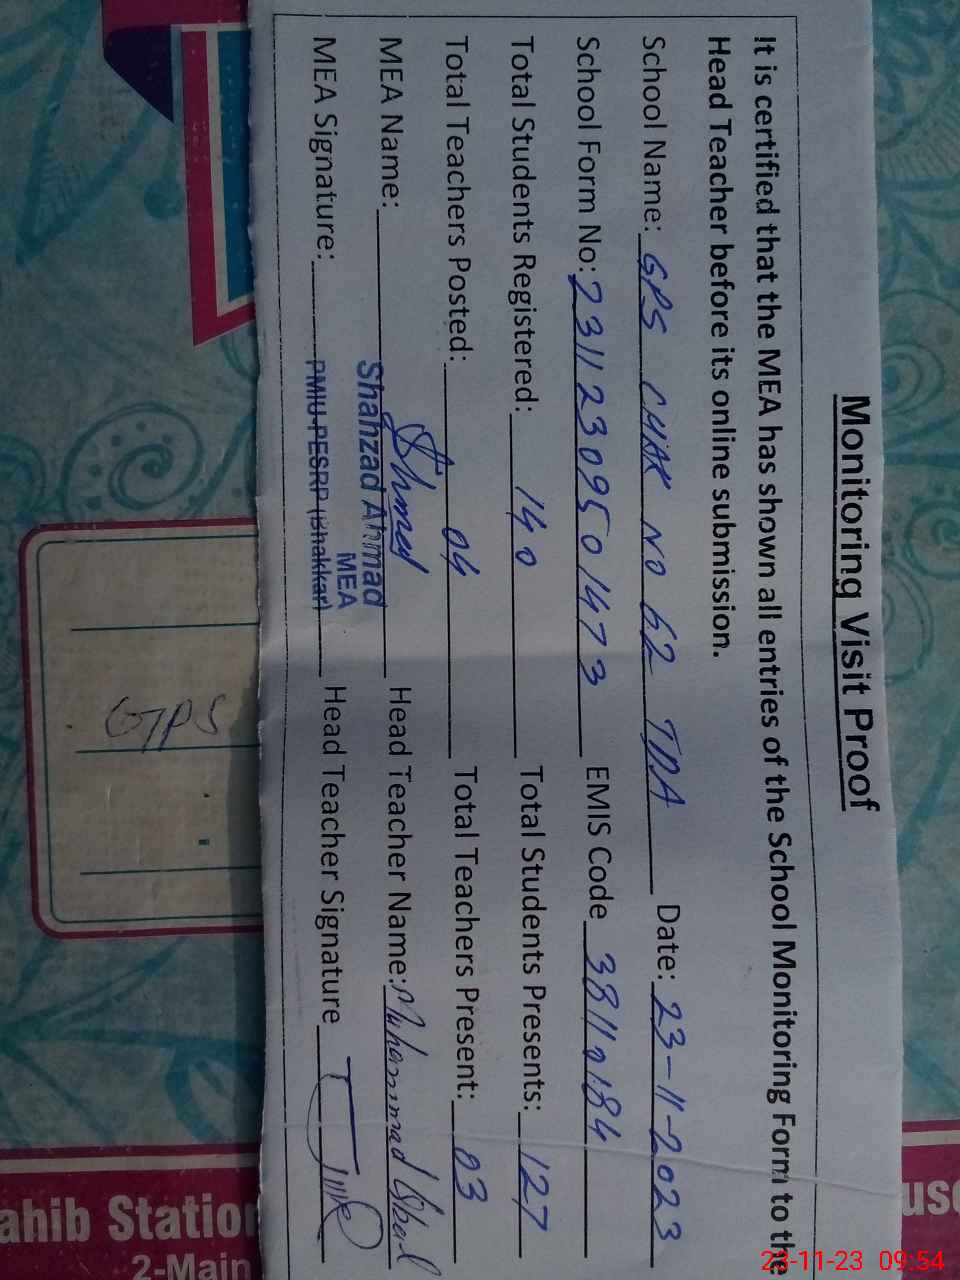 Monitoring Visit Proof
It is certified that the MEA has shown all entries of the School Monitoring Form to the
Head Teacher before its online submission.
School Name: GPS CHAK NO 62 TDA Date: 23-11-2023
School Form No: 23112309501473 EMIS Code 38110184
Total Students Registered: 140 Total Students Presents: 127
Total Teachers Posted: 04 Total Teachers Present: 03
MEA Name: Head Teacher Name: Muhammad
Shahzad Ahmad
MEA
MEA Signature: PMIU-PESRP (Bhakkar) Head Teacher Signature
GPS
ahib Statio
2-Main
use
23-11-23 09:54